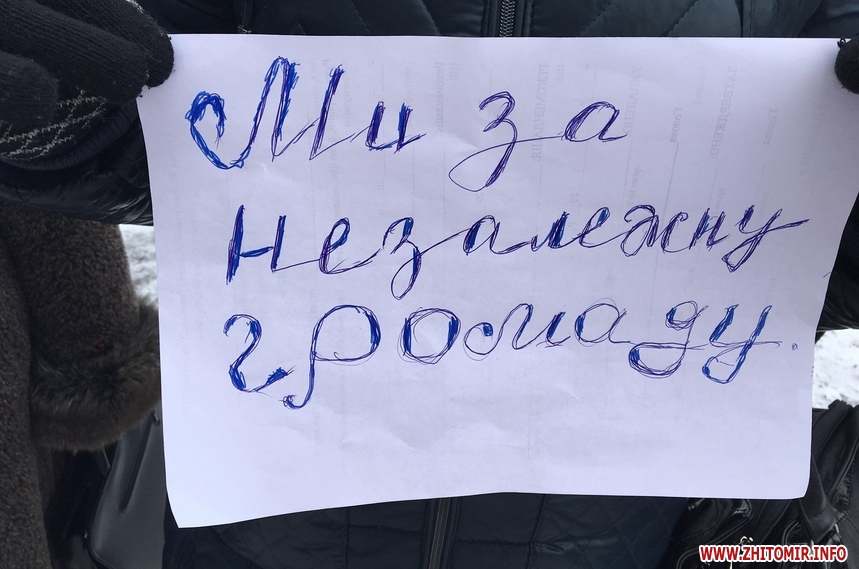 Ми за
незалежну
громаду.
WWW.ZHITOMIR.INFO